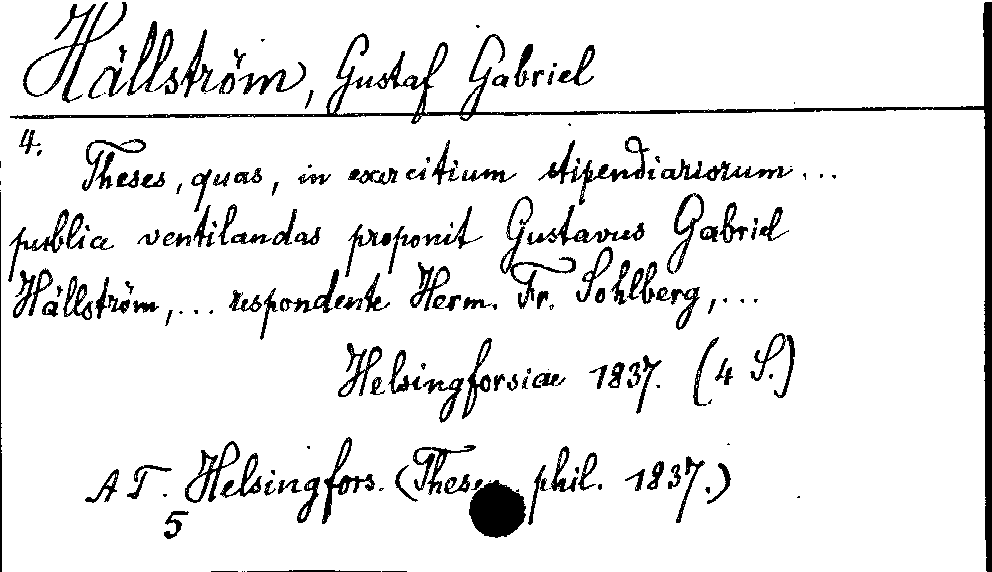 Hällström, Gustaf Gabriel
4.
Theses, quas, in exercitium stipendiariorum...
publice ventilandas proponit Gustavus Gabriel
Hällström,... respondente Herm. Fr. Sohlberg,...
Helsingforsiae 1837. (4 S.)
AT. Helsingfors. (Thesen phil. 1837.)
5